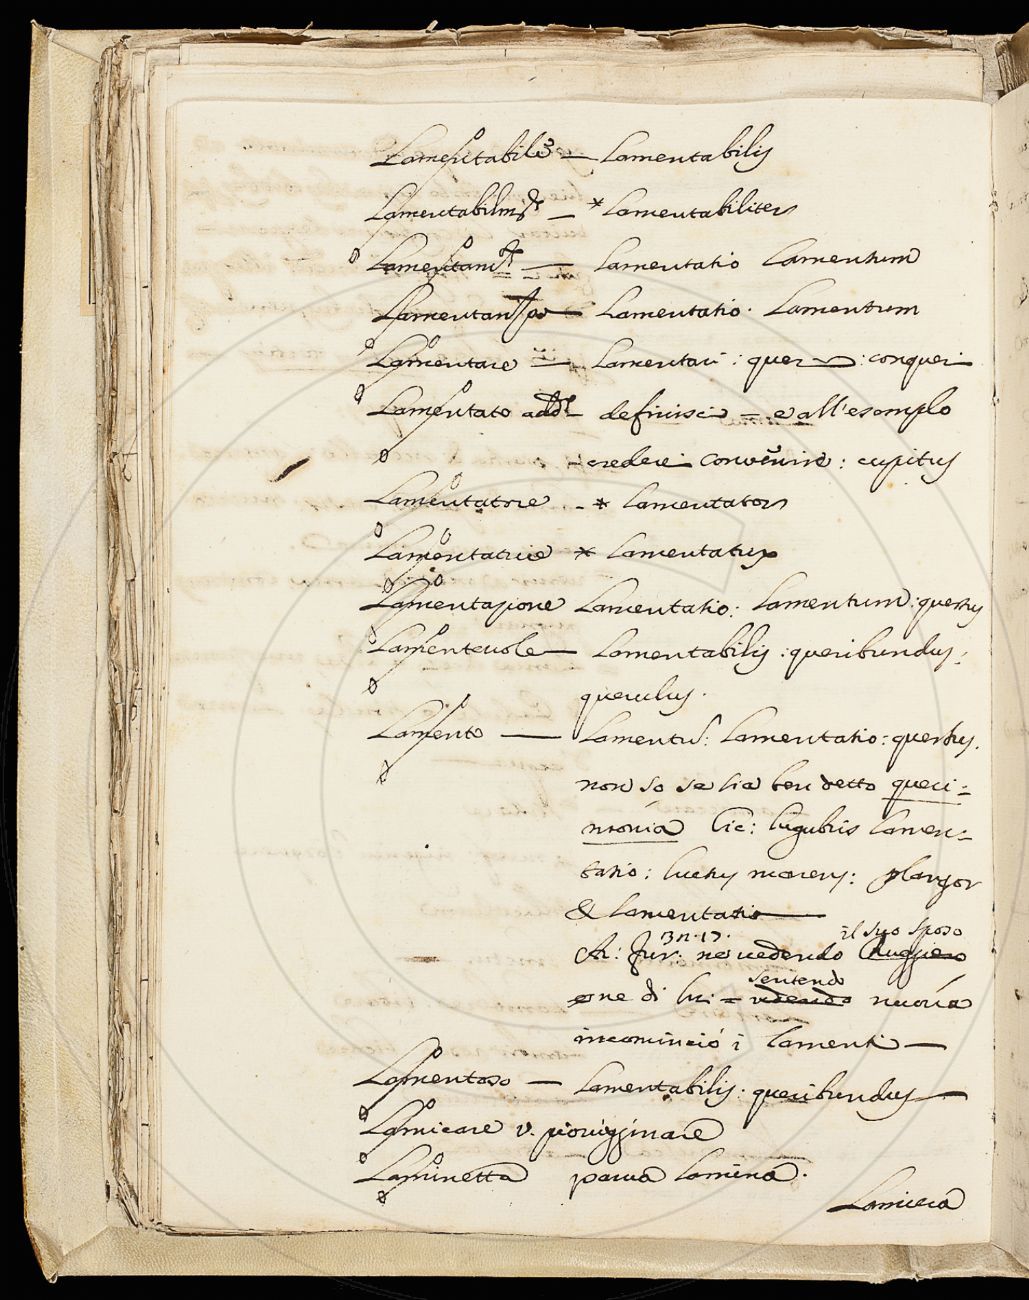 Lamentabile — Lamentabilis
Lamentabilm.te — * Lamentabiliter
Lamentam.to — Lamentatio Lamentum
Lamentatio. Lamentum
Lamentare — Lamentari: queri: conqueri
Lamentato add. definisci = e all'esemplo
credere convenire: cupitus
Lamentatore - * Lamentator
Lamentatrice * Lamentatrix
Lamentazione Lamentatio: Lamentum: questus
Lamenteuole — Lamentabilis: queribundus:
querulus.
Lamento — Lamentus: Lamentatio: questus.
non so se sia ben detto queri-
monia Cic: lugubris lamen-
tatio: luctus moerens: plangor
& lamentatio
Ar: Fur. 3n.17. ne vedendo il suo sposo
ne di lui = sentendo nuova
incominciò i lamenti —
Lamentoso — Lamentabilis. queribundus —
Lamicare v. piouigginare
Laminetta parua lamina.
Lamiera